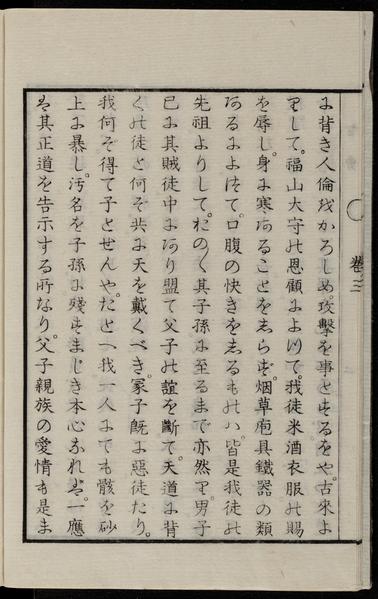 に背き人倫をかろしめ。攻撃を事とするをや。古來よ
りして。福山大守の恩顧によりて。我徒米酒衣服の賜
を辱し。身に寒あることをしらず。烟草庖具鐵器の類
あるによりて。口腹の快きをしるものハ。皆是我徒の
先祖よりして。おのく其子孫に至るまで亦然り。男子
已に其賊徒中にあり盟て父子の誼を斷て。天道に背
くの徒と何そ共に天を戴くべき。冢子既に惡徒たり。
我何そ得て子とせんや。たとへ我一人にても骸を砂
上に暴し。汚名を子孫に殘すまじき本心なれバ。一應
は其正道を告示する所なり。父子親族の愛情も是ま
卷三